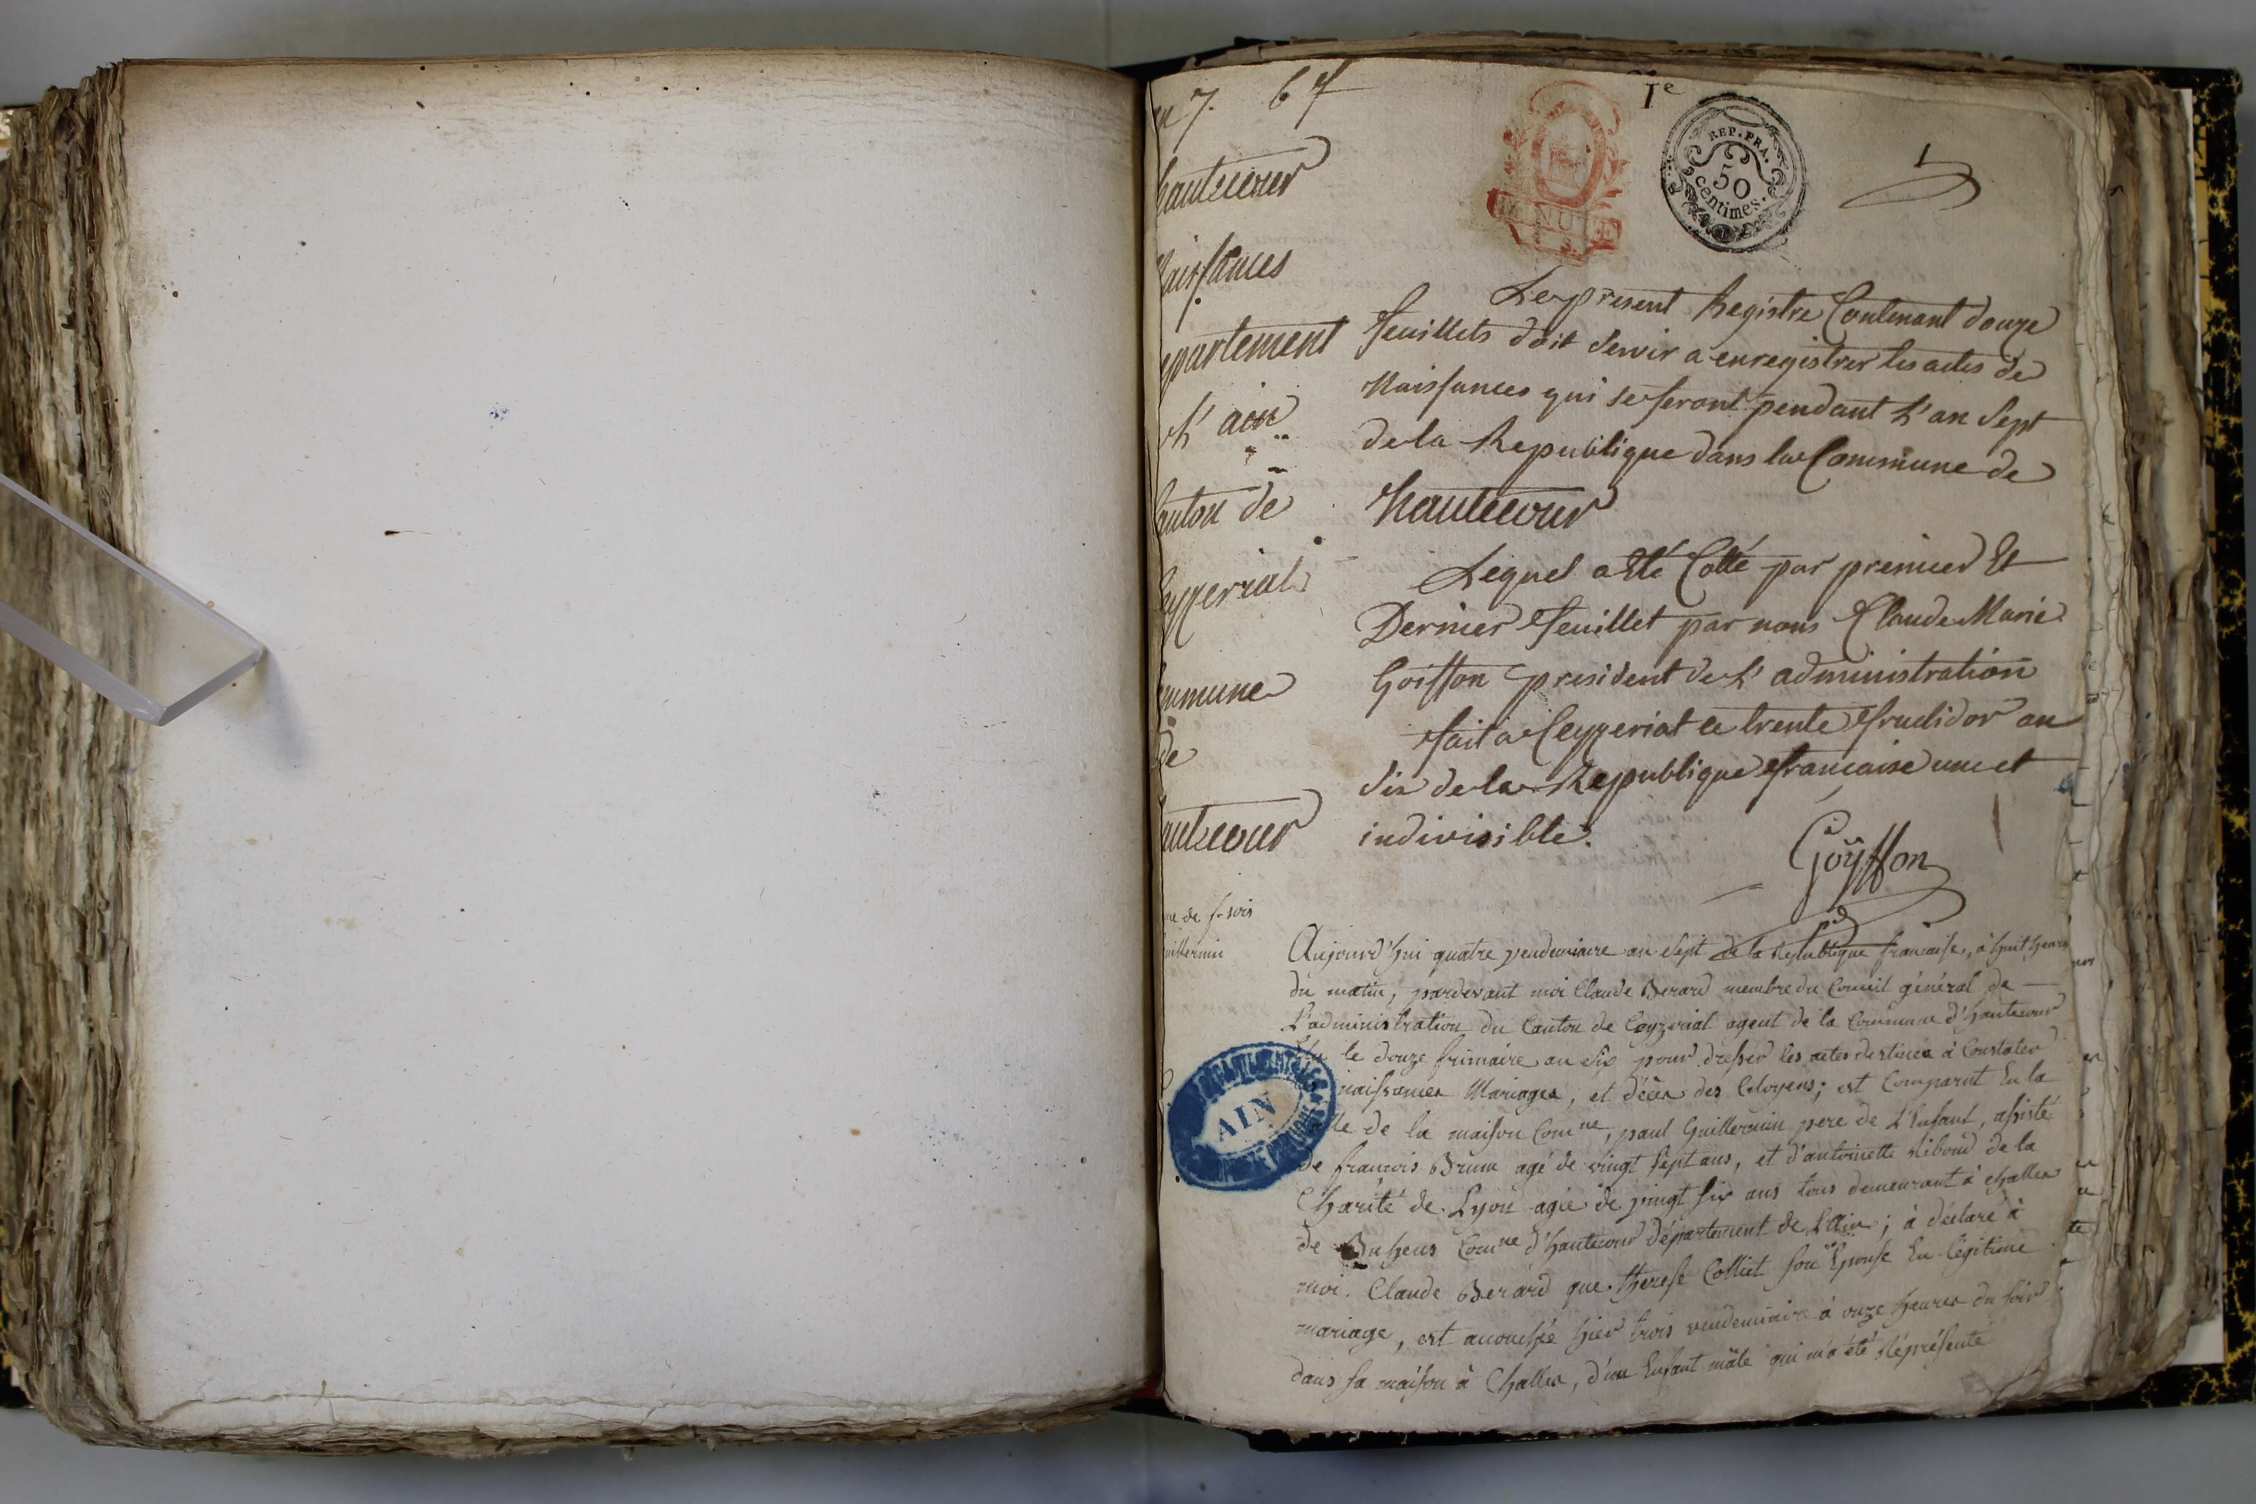 an 7. 64
1e
REP. FRA.
50
centimes.
hautecour
Naissances
epartement
de L'ain
Canton de
Ceyzeriat
ommune
de
hautecour
Le present Registre Contenant douze
feuillets doit servir a enregistrer les actes de
Naissances qui se feront pendant L'an Sept
de la Republique dans la Commune de
hautecour
Lequel a Eté Cotté par premier Et
Dernier feuillet par nous Claude Marie
Goiffon president de L'administration
fait a Ceyzeriat le trente fructidor an
Six de la Republique francaise une et
indivisible.
Goÿffon
pd
nce de f.sois
uillermin
Aujourd'hui quatre vendemiaire an Sept de la Republique francaise, à huit heures
du matin, pardevant moi Claude Berard membre du Conseil général de
L'administration du Canton de Ceyzeriat agent de la Commune d'hautecour
Elu le douze frimaire an Six pour dresser les actes destinés à Constater
naissances Mariages, et décès des Citoyens; est Comparut En la
salle de la maison Comne, paul Guillermin pere de L'Enfant, assisté
de francois Brun agé de vingt sept ans, et d'antoinette Riboud de la
Charité de Lyon agée de vingt six ans tous demeurant à Challes
de Bohens Comne d'hautecour département de L'Ain; à déclaré à
moi. Claude Berard que therese Colliet son Epouse En légitime
mariage, est accouchée hier trois vendemiaire à onze heures du soir
dans sa maison à Challes, d'un Enfant mâle qui m'a été Réprésenté
AIN